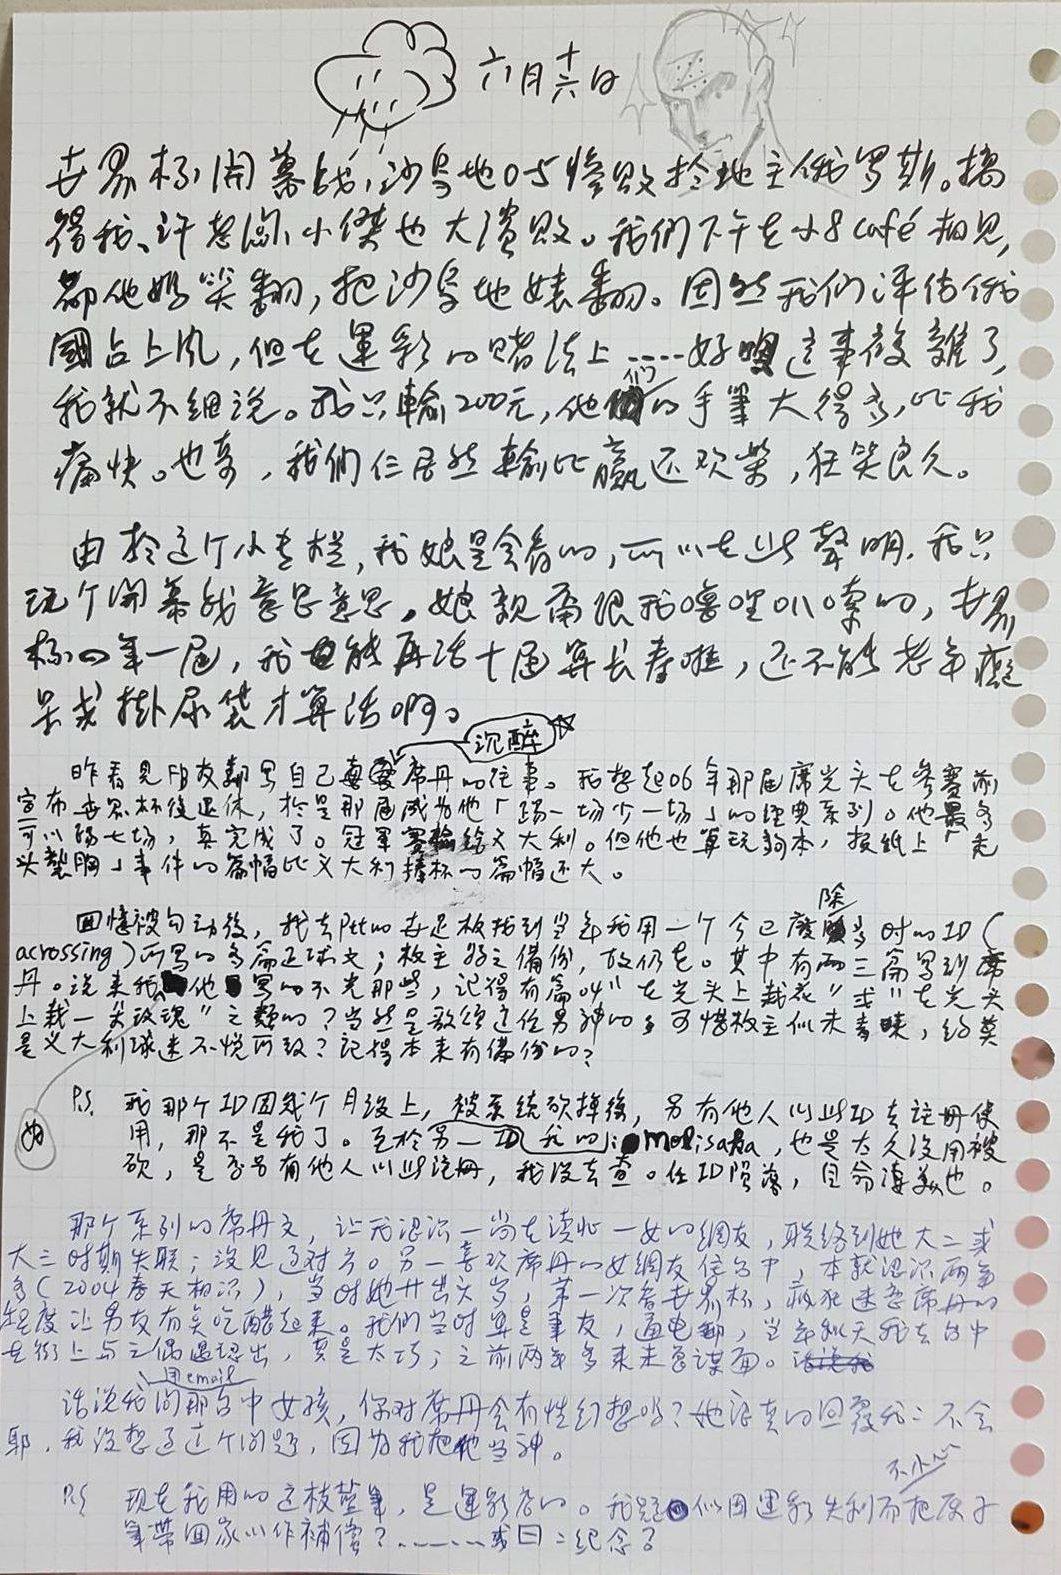 六月十六日
世界杯開幕战,沙烏地0-5慘敗於地主俄罗斯。搞
得我、許 小傑也大潰敗。我們下午在小8 café相見,
都他媽笑翻,把沙烏地婊翻。固然我们評估俄
國占上風,但在運彩的賭法上……好唄這事複雜了,
我就不細說。我只輸200元,他们的手筆大得多,比我
痛快。也奇,我們仨居然輸比贏还欢樂,狂笑良久。
由於这个小专栏,我娘是会看的,所以在此聲明,我只
玩个開幕战意思意思。娘親痛恨我嚕哩叭嗦的,世界
杯四年一屆,我能再活十屆算长寿啦,还不能老年癡
呆或掛尿袋才算活啊。
沉醉
昨看見FB友翻写自己 席丹的往事。我想起06年那屆席光头在参賽前
宣布世界杯後退休,於是那屆成为他「踢一场少一场」的經典系列。他最多
可以踢七场,真完成了。冠軍賽輸给义大利。但他也算玩夠本,报紙上「光
头墊胸」事件的篇幅比义大利捧杯的篇幅还大。
回憶被勾动後,我去Ptt的世足板找到当年我用一个今已廢除当时的ID(
acrossing)所写的多篇足球文;板主好之備份,故仍在。其中有两三篇写到席
丹。说来我 他 写的不光那些,記得有篇叫"在光头上栽花"或"在光头
上栽一朵玫瑰"之類的?当然是歌颂这位男神的。可惜板主似未青睐,約莫
是义大利球迷不悦所致?記得本来有備份的?
P.S. 我那个ID因幾个月没上,被系統砍掉後,另有他人以此ID去註册使
用,那不是我了。至於另一ID 我的 molisaka,也是太久没用被
砍,是否另有他人以此注册,我没去查。任ID陨落,自命淒美也。
那个系列的席丹文,让我認识一尚在讀 一女的網友,联络到她大二或
大三时期失联;没見过对方。另一喜欢席丹的女網友住台中,本就認识两年
多(2004春天相识),当时她廿出头岁,第一次看世界杯,瘋狂迷恋席丹的
程度让男友有点吃醋起来。我們当时算是筆友,通电郵,当年秋天我去台中
在街上与之偶遇認出,真是太巧;之前两年多来未曾謀面。
用email
话说我问那台中女孩,你对席丹会有性幻想吗?她認真的回覆我:不会
耶,我没想过这个问題,因为我把他当神。
不小心
P.S 现在我用的这枝藍筆,是運彩店的。我是 似因運彩失利而把店子
筆带回家以作補償?………或曰:纪念?